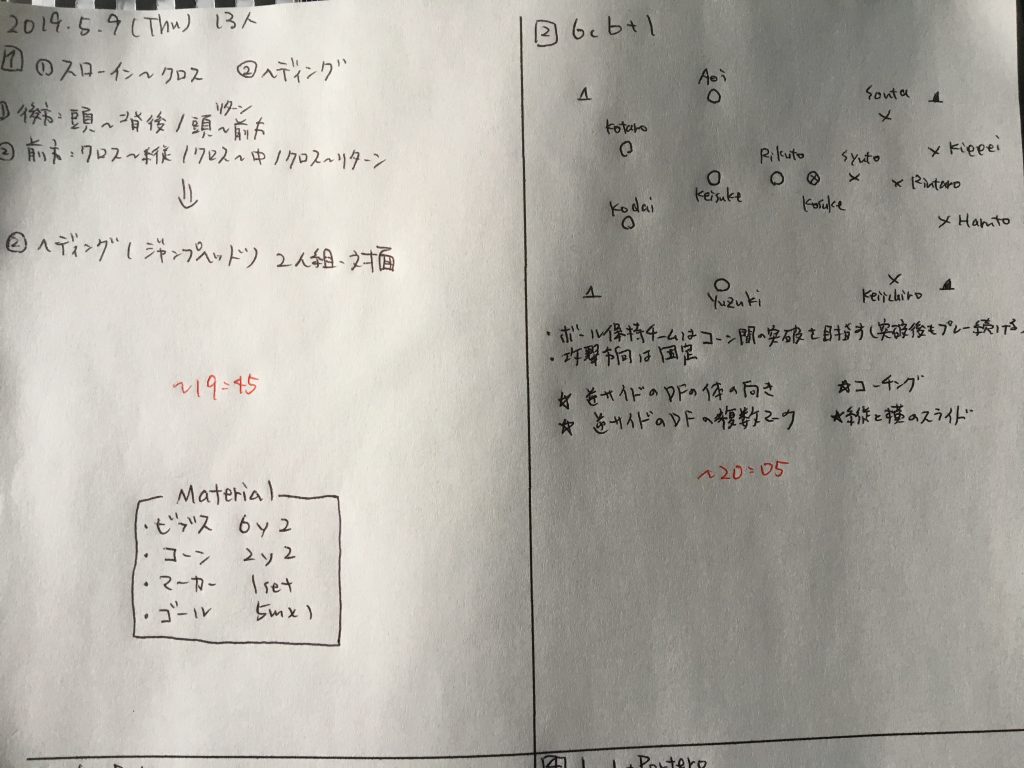 2019.5.9 (Thu) 13人
1 ①スローイン〜クロス ②ヘディング
① 後方：頭〜背後 / 頭〜前方
リターン
② 前方：クロス〜縦 / クロス〜中 / クロス〜リターン
⇓
② ヘディング (ジャンプヘッド) 2人組・対面
〜19:45
Material
・ビブス 6y2
・コーン 2y2
・マーカー 1set
・ゴール 5m×1
2 6c6+1
Aoi
Sonta
Kotaro
Rikuto
Syuto
Kippei
Keisuke
Kosuke
Rintaro
Kodai
Haruto
Yuzuki
Keiichiro
・ボール保持チームはコーン間の突破を目指す(突破後もプレー続ける)
・攻撃方向は固定
☆ 逆サイドのDFの体の向き ☆コーチング
☆ 逆サイドのDFの複数マーク ☆縦と横のスライド
〜20:05
4 +Portero